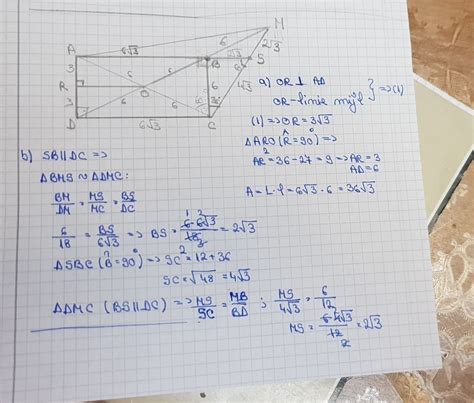 M
A 6√3 B 2√3 S 2√3
6
3 6 6 6 4√3
R O
3 6 6 6
D 6√3 C
a) OR ⊥ AD
OR - linie mijl } => (1)
(1) => OR = 3√3
ΔARO (R̂ = 90°)
AR² = 36 - 27 = 9 => AR = 3
AD = 6
A = L · l = 6√3 · 6 = 36√3
b) SB || DC =>
ΔBMS ~ ΔDMC:
BM/DM = MS/MC = BS/DC
6/18 = BS/6√3 => BS = 6·6√3/18 = 2√3
ΔSBC (B̂ = 90°) => SC² = 12 + 36
SC = √48 = 4√3
ΔDMC (BS || DC) => MS/SC = MB/BD ; MS/4√3 = 6/12
MS = 6·4√3/12 = 2√3